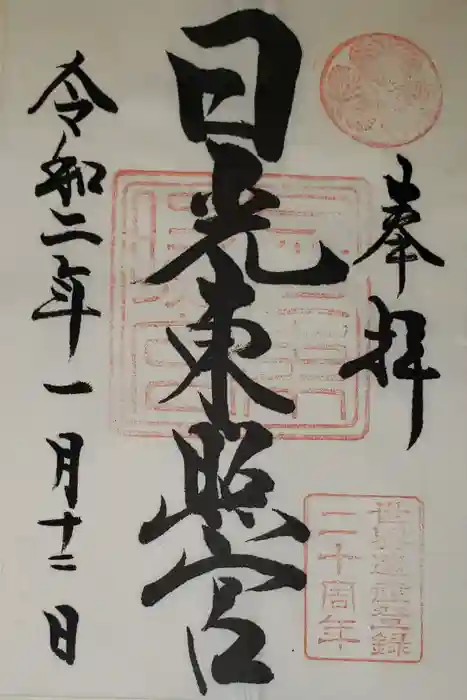 奉拝
日光東照宮
令和二年一月十二日
世界遺産登録
二十周年